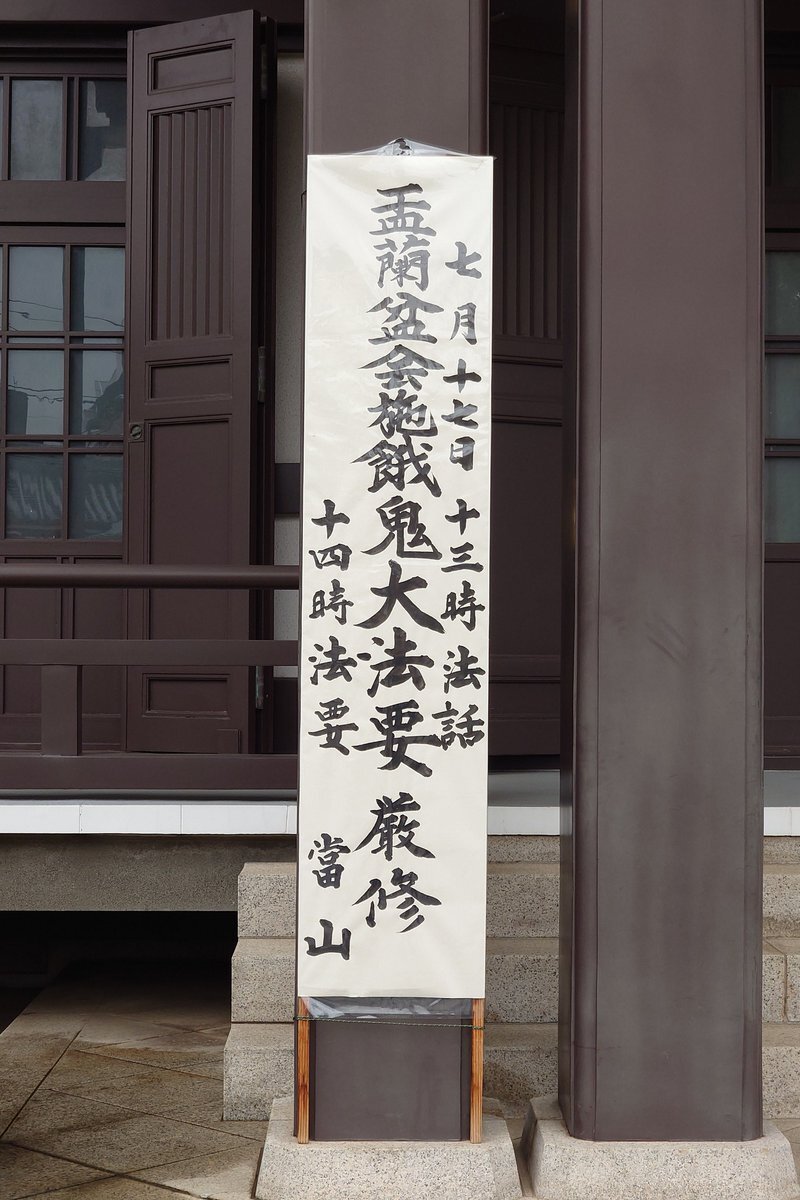 七月十七日 十三時法話
盂蘭盆会施餓鬼大法要 厳修
十四時法要 當山